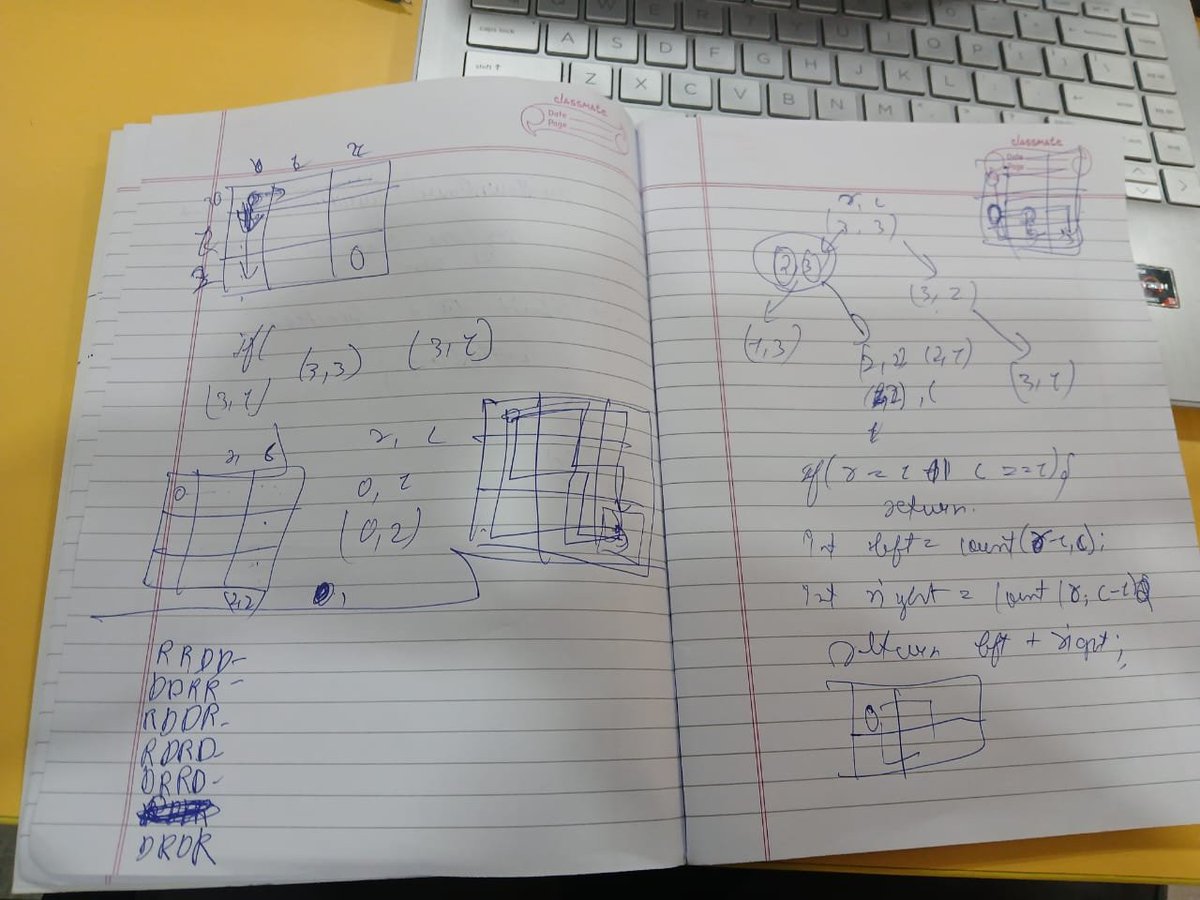 caps lock
A S D F G H J K L
shift ↑
Z X C V B N M
classmate
Date
Page
0 1 2
0
0
if(
(3,3)
(3,1)
(3,1)
r, c
0
0, 1
(0,2)
(2,2)
0,
RRDD-
DDRR-
RDDR-
RDRD-
DRRD-
DRDR
classmate
Date
Page
(r, c
3, 3)
2 3
(3, 2)
(1,3)
(2,1)
(3,1)
if(r = 1 || c == 1){
return.
Int left = count(r-1,c);
Int right = count(r, c-1)
return left + right;
0